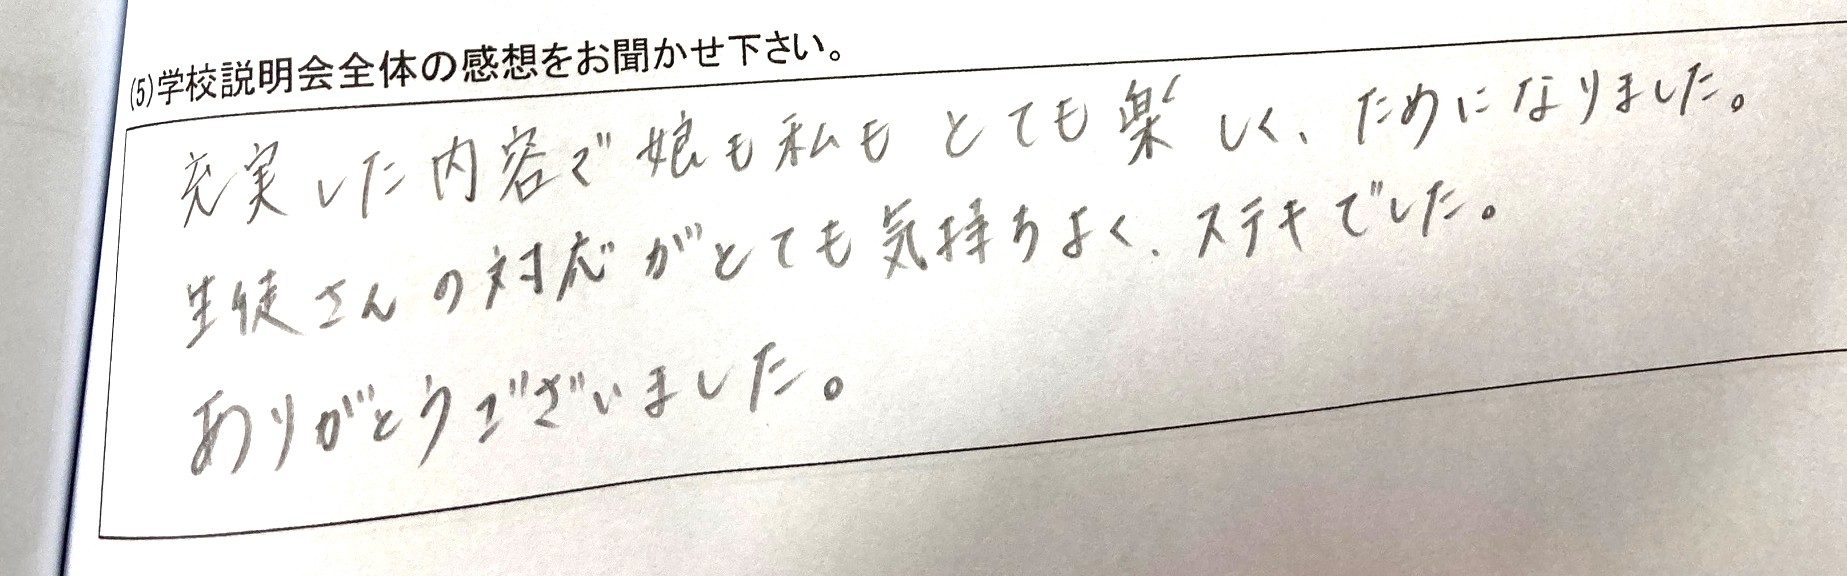 (5)学校説明会全体の感想をお聞かせ下さい。
充実した内容で娘も私もとても楽しく、ためになりました。
生徒さんの対応がとても気持ちよく、ステキでした。
ありがとうございました。